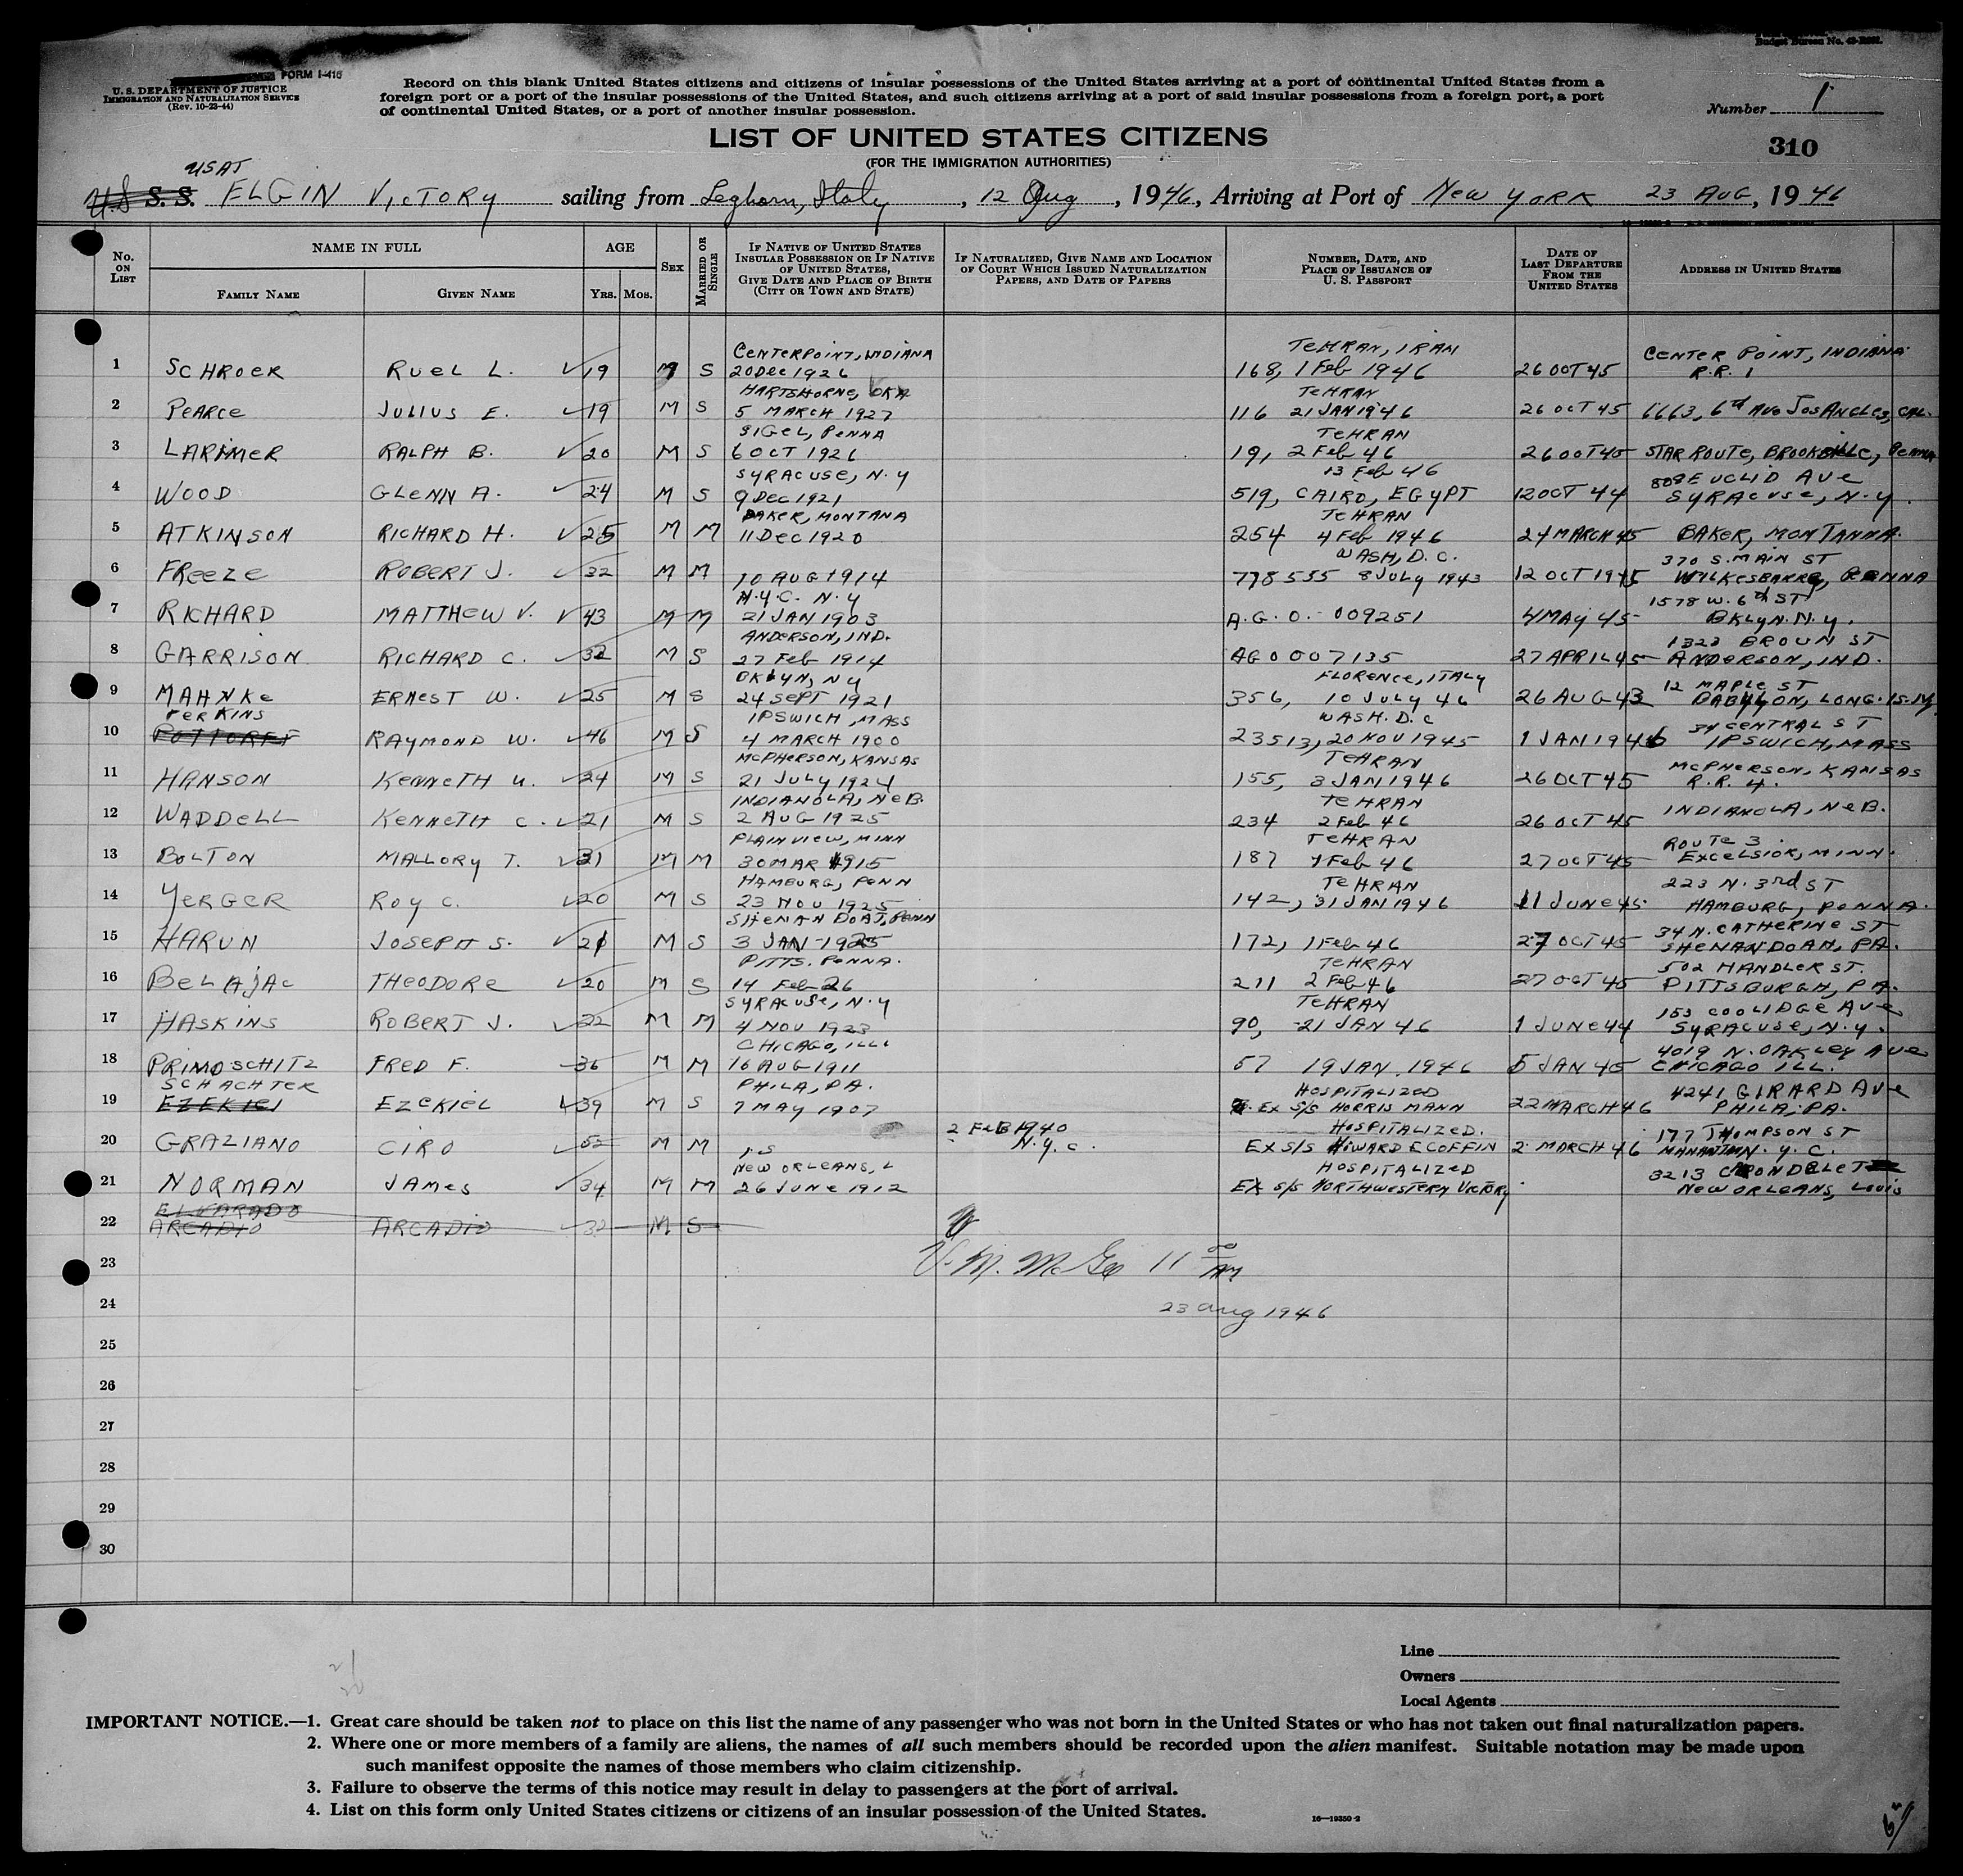 FORM I-415
U. S. DEPARTMENT OF JUSTICE
IMMIGRATION AND NATURALIZATION SERVICE
(Rev. 10-23-44)
Budget Bureau No.
Record on this blank United States citizens and citizens of insular possessions of the United States arriving at a port of continental United States from a
foreign port or a port of the insular possessions of the United States, and such citizens arriving at a port of said insular possessions from a foreign port, a port
of continental United States, or a port of another insular possession.
Number 1
LIST OF UNITED STATES CITIZENS
310
(FOR THE IMMIGRATION AUTHORITIES)
USAT
U.S S. S. ELGIN VICTORY sailing from Leghorn, Italy, 12 Aug, 1946, Arriving at Port of NEW YORK 23 AUG, 1946
No. ON LIST
NAME IN FULL
FAMILY NAME
GIVEN NAME
AGE
YRS. MOS.
SEX
MARRIED OR SINGLE
IF NATIVE OF UNITED STATES INSULAR POSSESSION OR IF NATIVE OF UNITED STATES, GIVE DATE AND PLACE OF BIRTH (CITY OR TOWN AND STATE)
IF NATURALIZED, GIVE NAME AND LOCATION OF COURT WHICH ISSUED NATURALIZATION PAPERS, AND DATE OF PAPERS
NUMBER, DATE, AND PLACE OF ISSUANCE OF U. S. PASSPORT
DATE OF LAST DEPARTURE FROM THE UNITED STATES
ADDRESS IN UNITED STATES
CENTERPOINT, INDIANA TEHRAN, IRAN CENTER POINT, INDIANA
1 SCHROER RUEL L. 19 M S 20 DEC 1926 168, 1 FEB 1946 26 OCT 45 R.R. 1
HARTSHORNE, OKA TEHRAN
2 PEARCE JULIUS E. 19 M S 5 MARCH 1927 116 21 JAN 1946 26 OCT 45 6663, 6th AVE LOS ANGLES, CAL.
SIGEL, PENNA TEHRAN
3 LARIMER RALPH B. 20 M S 6 OCT 1926 19, 2 FEB 46 26 OCT 45 STAR ROUTE, BROOKVILLE, PENNA
SYRACUSE, N.Y 13 FEB 46 809 EUCLID AVE
4 WOOD GLENN A. 24 M S 9 DEC 1921 519, CAIRO, EGYPT 12 OCT 44 SYRACUSE, N.Y.
BAKER, MONTANA TEHRAN
5 ATKINSON RICHARD H. 25 M M 11 DEC 1920 254 4 FEB 1946 24 MARCH 45 BAKER, MONTANNA.
WASH, D.C. 370 S. MAIN ST
6 FREEZE ROBERT J. 32 M M 10 AUG 1914 778535 8 JULY 1943 12 OCT 1945 WILKESBARRE, PENNA
N.Y.C. N.Y 1578 W. 6th ST
7 RICHARD MATTHEW V. 43 M M 21 JAN 1903 A.G.O. - 009251 4 MAY 45 BKLYN. N.Y.
ANDERSON, IND. 1323 BROUN ST
8 GARRISON RICHARD C. 32 M S 27 FEB 1914 AGO 007135 27 APRIL 45 ANDERSON, IND.
BKLYN, NY FLORENCE, ITALY 12 MAPLE ST
9 MAHNKE ERNEST W. 25 M S 24 SEPT 1921 356, 10 JULY 46 26 AUG 43 BABYLON, LONG. IS. N.Y
PERKINS IPSWICH, MASS WASH. D.C 34 CENTRAL ST
10 RAYMOND W. 46 M S 4 MARCH 1900 23513, 20 NOV 1945 1 JAN 1946 IPSWICH, MASS
MCPHERSON, KANSAS TEHRAN MCPHERSON, KANSAS
11 HANSON KENNETH U. 24 M S 21 JULY 1924 155, 3 JAN 1946 26 OCT 45 R.R. 4.
INDIANOLA, NEB. TEHRAN
12 WADDELL KENNETH C. 21 M S 2 AUG 1925 234 2 FEB 46 26 OCT 45 INDIANOLA, NEB.
PLAINVIEW, MINN TEHRAN ROUTE 3
13 BOLTON MALLORY T. 31 M M 30 MAR 1915 187 1 FEB 46 27 OCT 45 EXCELSIOR, MINN.
HAMBURG, PENN TEHRAN 223 N. 3rd ST
14 YERGER ROY C. 20 M S 23 NOV 1925 142, 31 JAN 1946 11 JUNE 45 HAMBURG, PENNA.
SHENANDOAT, PENN 34 N. CATHERINE ST
15 HARUN JOSEPH S. 21 M S 3 JAN - 1925 172, 1 FEB 46 27 OCT 45 SHENANDOAH, PA.
PITTS. PENNA. TEHRAN 502 HANDLER ST.
16 BELAJAC THEODORE 20 M S 14 FEB 26 211 2 FEB 46 27 OCT 45 PITTSBURGH, PA.
SYRACUSE, N.Y TEHRAN 153 COOLIDGE AVE
17 HASKINS ROBERT J. 22 M M 4 NOV 1923 90, 21 JAN 46 1 JUNE 44 SYRACUSE, N.Y.
CHICAGO, ILL. 4019 N. OAKLEY AVE
18 PRIMOSCHITZ FRED F. 36 M M 16 AUG 1911 57 19 JAN. 1946 5 JAN 45 CHICAGO ILL.
SCHACHTER PHILA, PA. HOSPITALIZED 4241 GIRARD AVE
19 EZEKIEL EZEKIEL 39 M S 7 MAY 1907 EX S/S HORRIS MANN 22 MARCH 46 PHILA, PA.
2 FEB 1940 HOSPITALIZED. 177 THOMPSON ST
20 GRAZIANO CIRO 52 M M N.Y.C. EX S/S HOWARD E COFFIN 2 MARCH 46 N.Y.C.
NEW ORLEANS, L HOSPITALIZED 3213 CARONDELET
21 NORMAN JAMES 34 M M 26 JUNE 1912 EX S/S NORTHWESTERN VICTORY NEW ORLEANS, LOUIS
ELVARADO
22 ARCADIO ARCADIO 32 M S
23 V. M. McGee 11 00 AM
24 23 Aug 1946
25
26
27
28
29
30
Line
Owners
Local Agents
IMPORTANT NOTICE.—1. Great care should be taken not to place on this list the name of any passenger who was not born in the United States or who has not taken out final naturalization papers.
2. Where one or more members of a family are aliens, the names of all such members should be recorded upon the alien manifest. Suitable notation may be made upon
such manifest opposite the names of those members who claim citizenship.
3. Failure to observe the terms of this notice may result in delay to passengers at the port of arrival.
4. List on this form only United States citizens or citizens of an insular possession of the United States.
16—19350-2